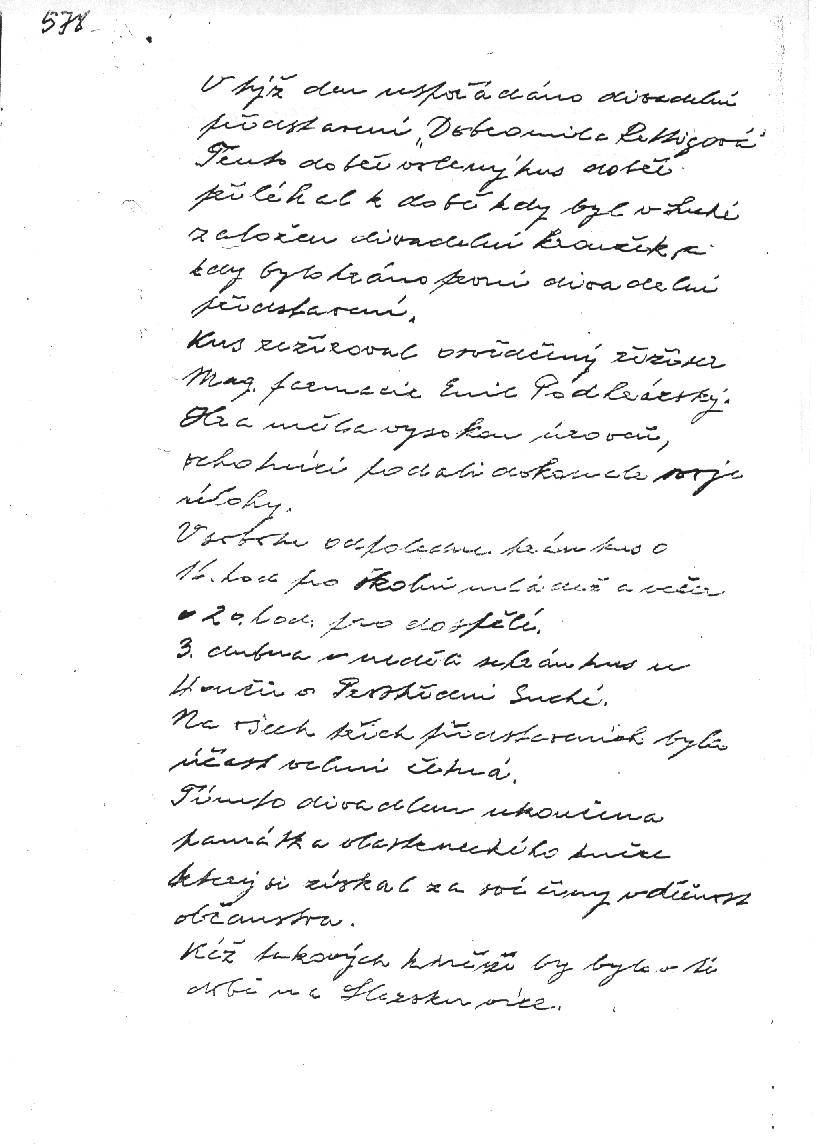 578
V týž den uspořádáno divadelní
představení „Dobromila Rettigová"
Tento dobře volený kus dobře
přiléhal k době kdy byl v Suché
založen divadelní kroužek, a
kdy bylo hráno první divadelní
představení.
Kus režíroval osvědčený režisér
Mag. farmacie Emil Podhrázský.
Hra měla vysokou úroveň,
ochotníci podali dokonale svoje
úlohy.
V sobotu odpoledne hrán kus o
16. hod pro školní mládež a večer
v 20. hod. pro dospělé.
3. dubna v neděli sehrán kus u
v Prostřední Suché.
Na všech třech představeních byla
účast velmi četná.
Tímto divadlem ukončena
památka vlasteneckého kněze
který si získal za své činy vděčnost
občanstva.
Kéž takových kněží by bylo v té
době na Slezsku více.